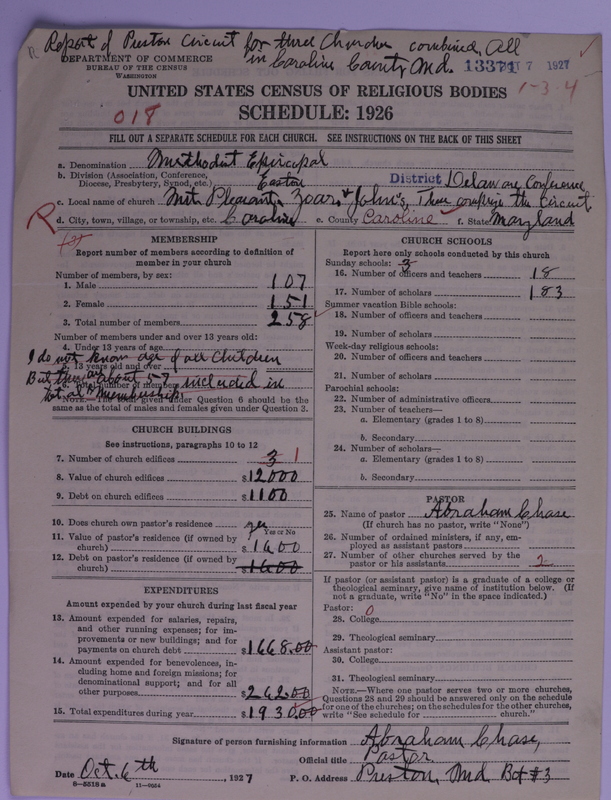 Report of Preston Circuit for three Churches combined, All
in Caroline County Md.
DEPARTMENT OF COMMERCE
BUREAU OF THE CENSUS
WASHINGTON
13371 7 1927
1-3-4
UNITED STATES CENSUS OF RELIGIOUS BODIES
018
SCHEDULE: 1926
FILL OUT A SEPARATE SCHEDULE FOR EACH CHURCH. SEE INSTRUCTIONS ON THE BACK OF THIS SHEET
a. Denomination Methodist Episcopal
b. Division (Association, Conference,
Diocese, Presbytery, Synod, etc.) Easton District Delaware Conference
c. Local name of church Mt. Pleasant, Zoar, & John's, These comprise the Circuit
R
d. City, town, village, or township, etc. Caroline e. County Caroline f. State Maryland
MEMBERSHIP
Report number of members according to definition of
member in your church
Number of members, by sex:
1. Male 107
2. Female 151
3. Total number of members 258
Number of members under and over 13 years old:
4. Under 13 years of age
I do not know age of all Children
5. 13 years old and over
But there are about 57 included in
6. Total number of members
total membership
NOTE.—The total given under Question 6 should be the
same as the total of males and females given under Question 3.
CHURCH BUILDINGS
See instructions, paragraphs 10 to 12
7. Number of church edifices 3 1
8. Value of church edifices $12000
9. Debt on church edifices $1100
10. Does church own pastor's residence yes
Yes or No
11. Value of pastor's residence (if owned by
church) $1600
12. Debt on pastor's residence (if owned by
church) $1600
EXPENDITURES
Amount expended by your church during last fiscal year
13. Amount expended for salaries, repairs,
and other running expenses; for im-
provements or new buildings; and for
payments on church debt $1668.00
14. Amount expended for benevolences, in-
cluding home and foreign missions; for
denominational support; and for all
other purposes $262.00
15. Total expenditures during year $1930.00
CHURCH SCHOOLS
Report here only schools conducted by this church
Sunday schools: 3
16. Number of officers and teachers 18
17. Number of scholars 183
Summer vacation Bible schools:
18. Number of officers and teachers
19. Number of scholars
Week-day religious schools:
20. Number of officers and teachers
21. Number of scholars
Parochial schools:
22. Number of administrative officers
23. Number of teachers—
a. Elementary (grades 1 to 8)
b. Secondary
24. Number of scholars—
a. Elementary (grades 1 to 8)
b. Secondary
PASTOR
25. Name of pastor Abraham Chase
(If church has no pastor, write "None")
26. Number of ordained ministers, if any, em-
ployed as assistant pastors
27. Number of other churches served by the
pastor or his assistants 2
If pastor (or assistant pastor) is a graduate of a college or
theological seminary, give name of institution below. (If
not a graduate, write "No" in the space indicated.)
Pastor: 0
28. College
29. Theological seminary
Assistant pastor:
30. College
31. Theological seminary
NOTE.—Where one pastor serves two or more churches,
Questions 28 and 29 should be answered only on the schedule
for one of the churches; on the schedules for the other churches,
write "See schedule for church."
Signature of person furnishing information Abraham Chase,
Official title Pastor
Date Oct. 6th, 1927 P. O. Address Preston, Md. Box #3
8-5518a 11-9054